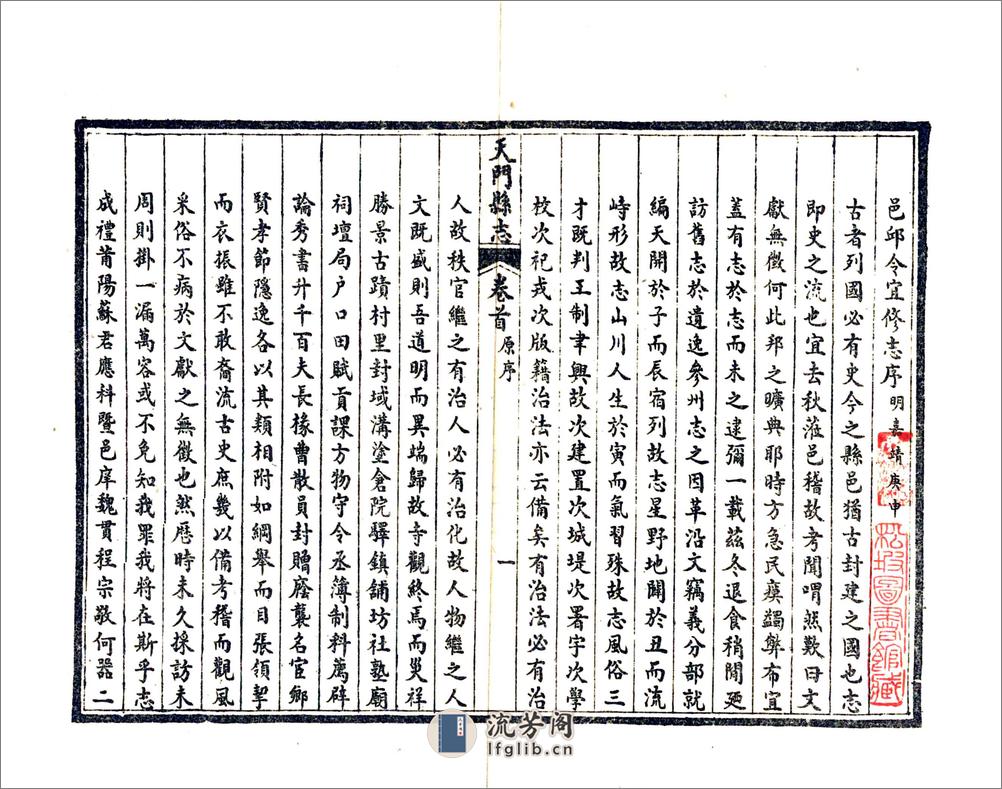 邑邱令宜修志序明嘉靖庚申
古者列國必有史今之縣邑猶古封建之國也志
即史之流也宜去秋蒞邑稽故考聞喟然歎曰文
獻無徵何此邦之曠典耶時方急民瘼蠲弊布宜
蓋有志於志而未之逮彌一載茲冬退食稍閒廼
訪舊志於遺逸參州志之因革沿文竊義分部就
編天開於子而辰宿列故志星野地闢於丑而流
峙形故志山川人生於寅而氣習殊故志風俗三
才既判王制聿興故次建置次城堤次署字次學
校次祀戎次版籍治法亦云備矣有治法必有治
天門縣志 卷首 原序 一
人故秩官繼之有治人必有治化故人物繼之人
文既盛則吾道明而異端歸故寺觀終焉而災祥
勝景古蹟村里封域溝塗倉院驛鎮舖坊社塾廟
祠壇局户口田賦貢課方物守令丞簿制科薦辟
論秀書升千百夫長椽曹散員封贈廕襲名宦鄉
賢孝節隱逸各以其類相附如綱舉而目張領挈
而衣振雖不敢裔流古史庶幾以備考稽而觀風
采俗不病於文獻之無徵也然歷時未久採訪未
周則掛一漏萬容或不免知我罪我將在斯乎志
成禮莆陽蘇君應科暨邑庠魏貫程宗敬何器二
松坡圖書館藏
流芳阁
lfglib.cn